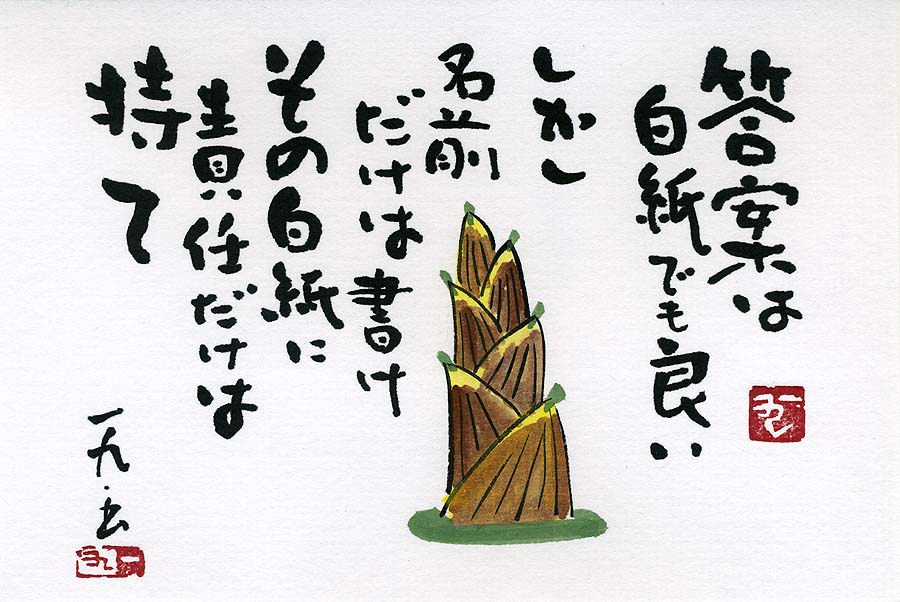 答案は
白紙でも良い
しかし
名前
だけは書け
その白紙に
責任だけは
持て
一九・去